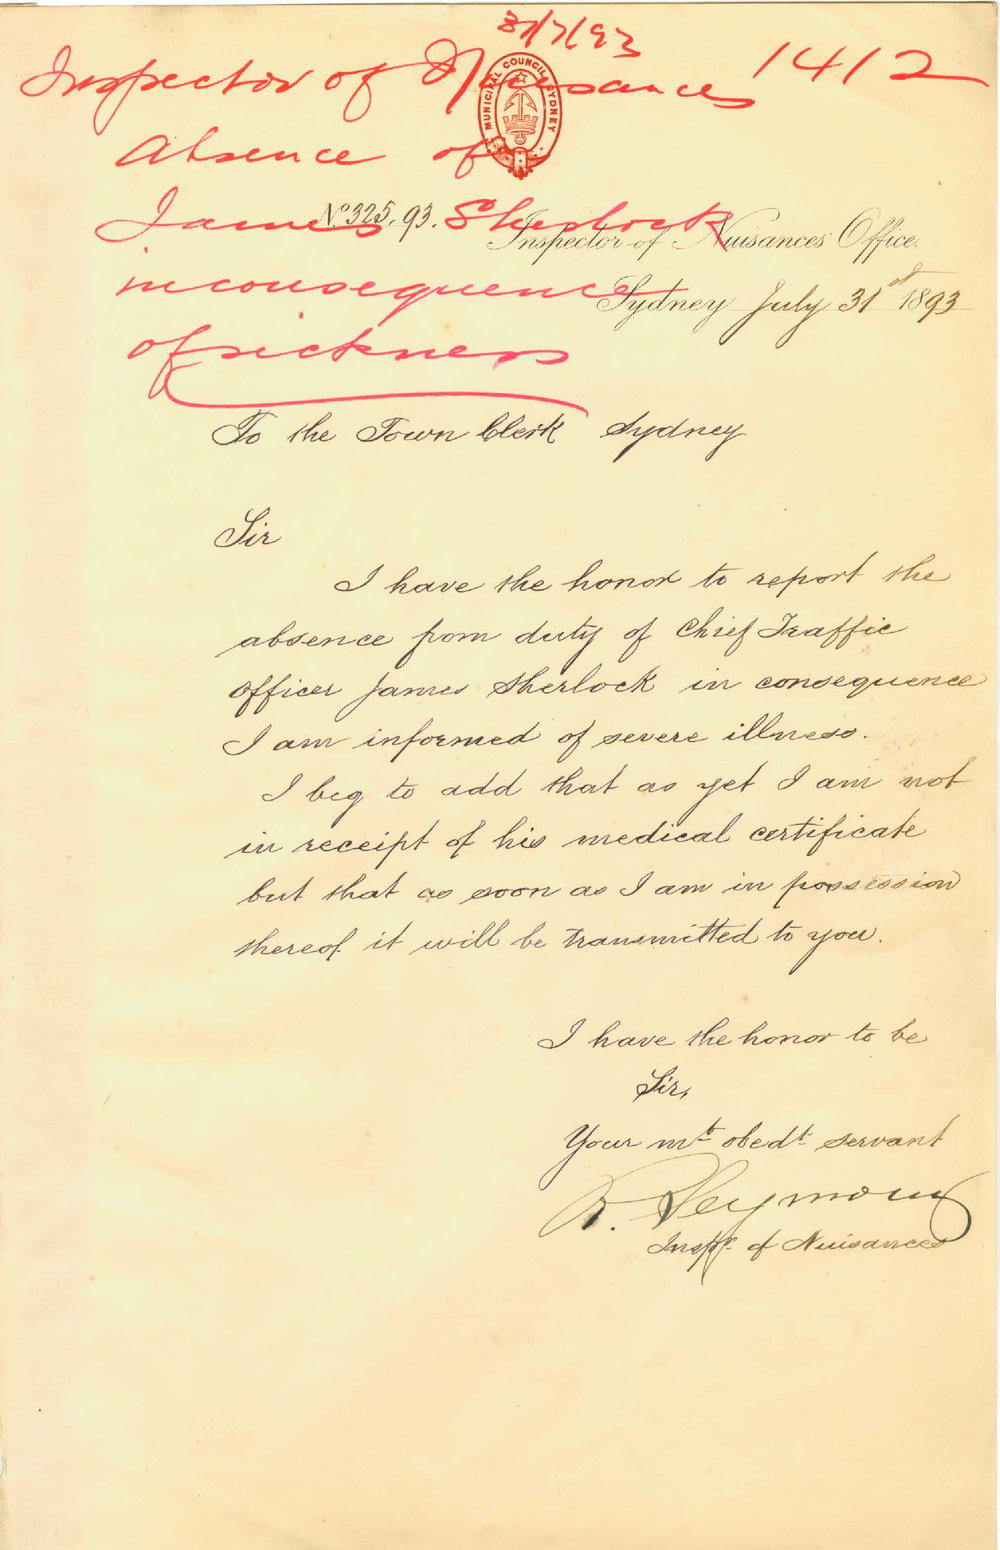 31/7/93
Inspector of Nuisances 1412
Absence of
James Sherlock
in consequence
of sickness
MUNICIPAL COUNCIL SYDNEY
No 325.93.
Inspector of Nuisances Office.
Sydney July 31st 1893
To the Town Clerk Sydney
Sir
I have the honor to report the
absence from duty of Chief Traffic
Officer James Sherlock in consequence
I am informed of severe illness.
I beg to add that as yet I am not
in receipt of his medical certificate
but that as soon as I am in possession
thereof it will be transmitted to you.
I have the honor to be
Sir,
Your mt. obedt. servant
R. Seymour
Inspr. of Nuisances